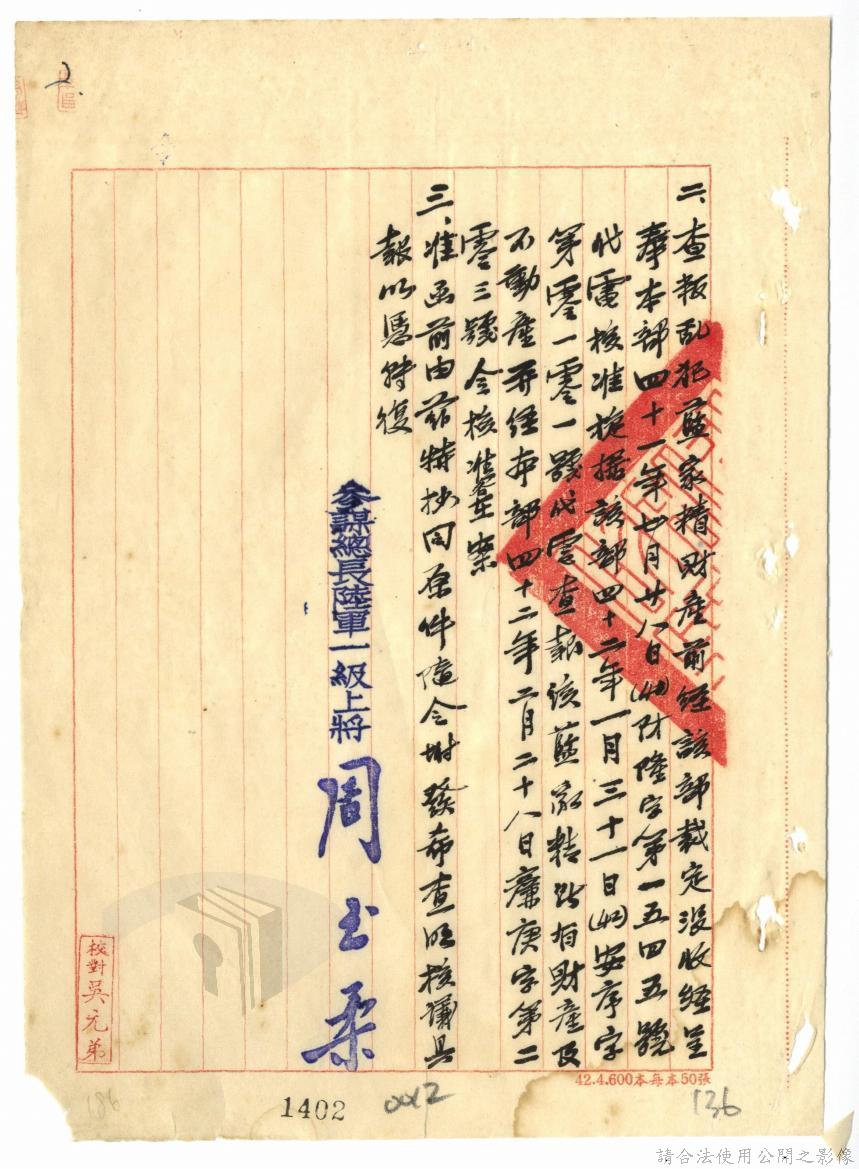 二、查叛乱犯藍家精財產前經該部裁定沒收經呈
奉本部四十一年七月廿八日(41)防隆字第一五四五號
代電核准據該部四十二年一月三十一日(42)安序字
第零一零一號代電查報該藍家精所有財產及
不動產并經本部四十二年二月二十八日廉庚字第二
零三號令核准在案
三、准函前由茲特抄同原件隨令附發希查明核議具
報以憑轉復
參謀總長陸軍一級上將 周至柔
校對吳元弟
42.4.600本每本50張
1402
0012
136
186
請合法使用公開之影像